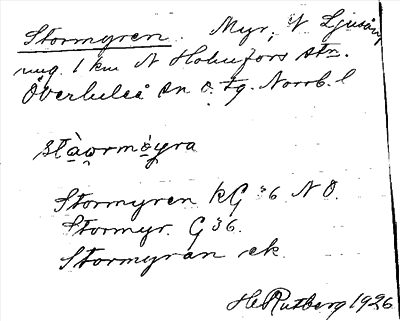 Stormyren. Myr, V Ljusån,
ung. 1 km N Holmfors stn.
Överluleå sn o. tg. Norrb. l
stàormöyra
Stormyren kG 36 NO.
Stormyr. G 36.
Stormyran ek.
H Rutberg 1926